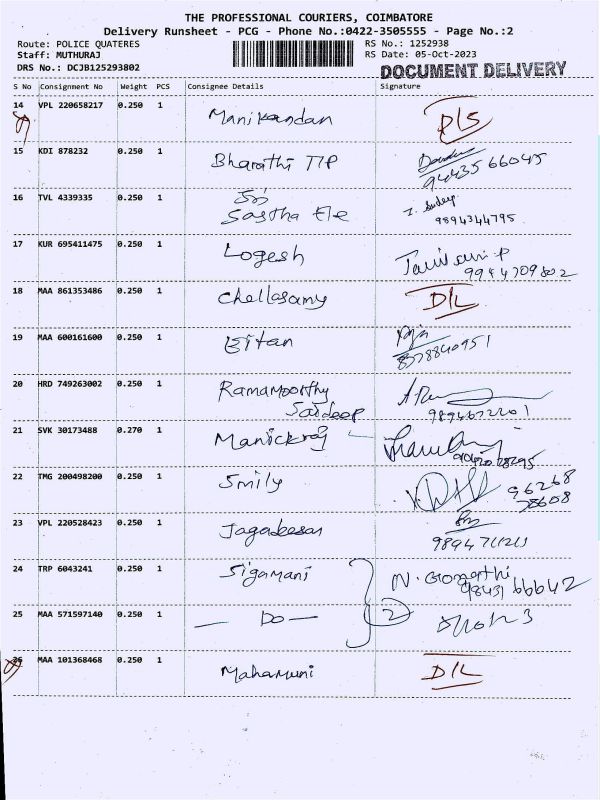 THE PROFESSIONAL COURIERS, COIMBATORE
Delivery Runsheet - PCG - Phone No.:0422-3505555 - Page No.:2
Route: POLICE QUATERES RS No.: 1252938
Staff: MUTHURAJ RS Date: 05-Oct-2023
DRS No.: DCJB125293802 DOCUMENT DELIVERY
S No Consignment No Weight PCS Consignee Details Signature
14 VPL 220658217 0.250 1 Manikandan D/S
15 KDI 878232 0.250 1 Bharathi TIP
94435 66045
16 TVL 4339335 0.250 1 Sri
Sastha Ele
9894344795
17 KUR 695411475 0.250 1 Logesh
9944709802
18 MAA 861353486 0.250 1 Chellasamy D/L
19 MAA 600161600 0.250 1
8378840951
20 HRD 749263002 0.250 1 Ramamoorthy
Saideep
21 SVK 30173488 0.270 1 Manickraj
22 TMG 200498200 0.250 1 Smily 96268
78608
23 VPL 220528423 0.250 1 Jagadeesan
24 TRP 6043241 0.250 1 Sigamani N. Gomathi
98431 66642
25 MAA 571597140 0.250 1 — Do — 2
26 MAA 101368468 0.250 1 Mahamuni D/L